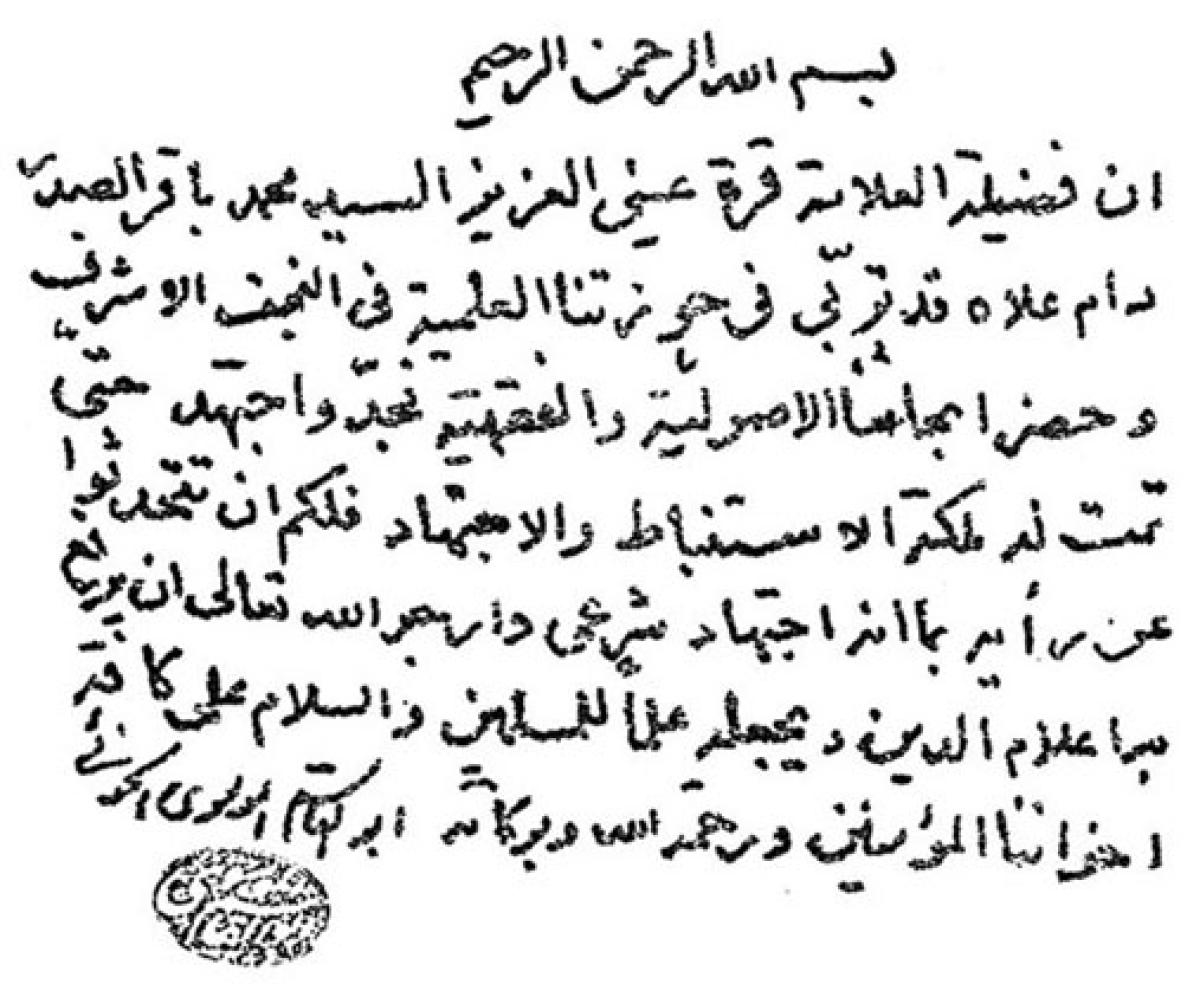 بسم الله الرحمن الرحيم
ان فضيلة العلامة قرة عيني العزيز السيد محمد باقر الصدر
دام علاه قد تربّي في حوزتنا العلمية في النجف الاشرف
و حضر ابحاثنا الاصولية والفقهية فجدّ واجتهد حتّي
تمت له ملكة الاستنباط والاجتهاد فلكم ان تتحدثوا
عن رأيه بما انه اجتهاد شرعي وارجو الله تعالى ان يرفع
به اعلام الدين و يجعله علما للمسلمين والسلام على كافة
اخواننا المؤمنين ورحمة الله وبركاته ابو القاسم الموسوى الخوئي